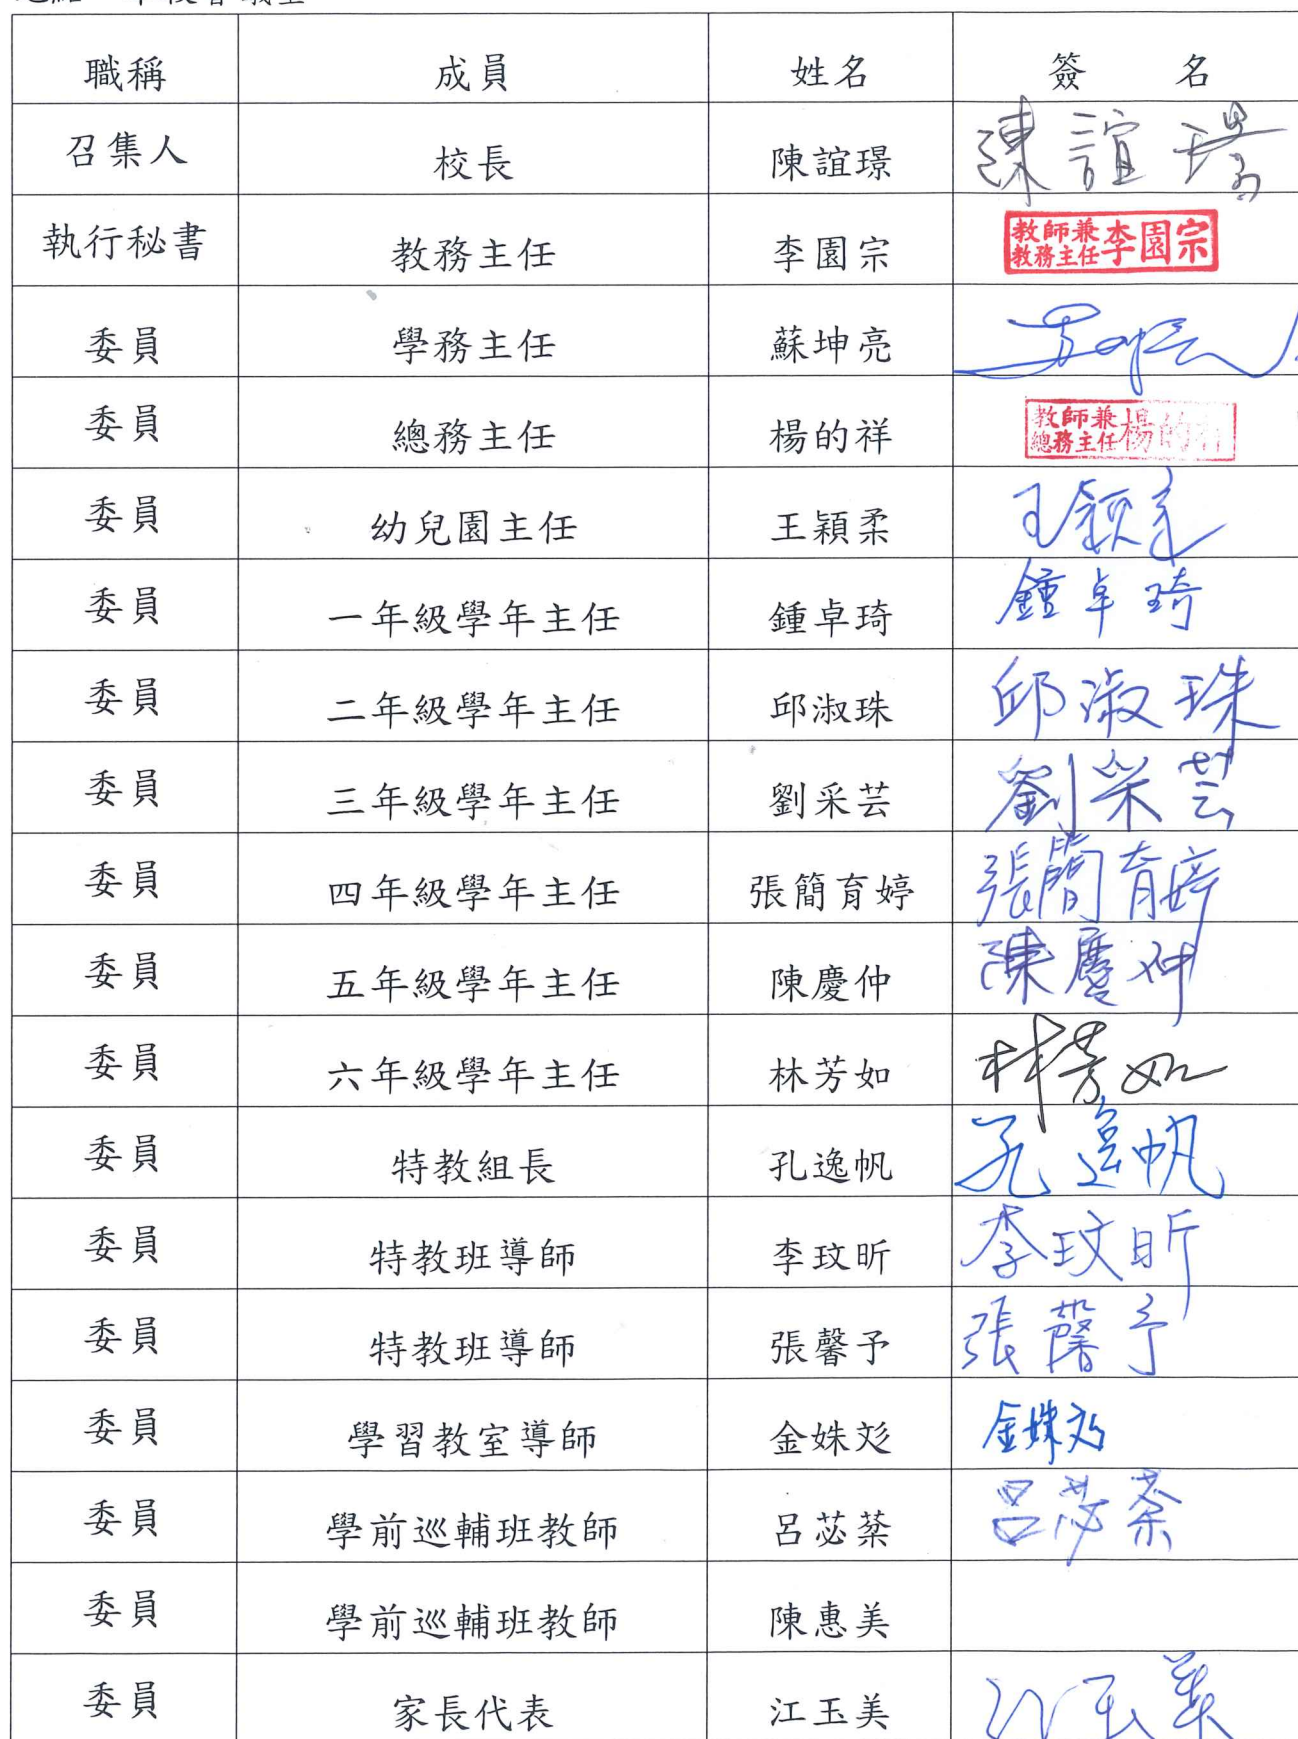 職稱 成員 姓名 簽名
召集人 校長 陳誼璟 陳誼璟
執行秘書 教務主任 李園宗 教師兼教務主任李園宗
委員 學務主任 蘇坤亮
委員 總務主任 楊的祥 教師兼總務主任楊的祥
委員 幼兒園主任 王穎柔 王穎柔
委員 一年級學年主任 鍾卓琦 鍾卓琦
委員 二年級學年主任 邱淑珠 邱淑珠
委員 三年級學年主任 劉采芸 劉采芸
委員 四年級學年主任 張簡育婷 張簡育婷
委員 五年級學年主任 陳慶仲 陳慶仲
委員 六年級學年主任 林芳如 林芳如
委員 特教組長 孔逸帆 孔逸帆
委員 特教班導師 李玟昕 李玟昕
委員 特教班導師 張馨予 張馨予
委員 學習教室導師 金姝彣 金姝彣
委員 學前巡輔班教師 呂苾蒅 呂苾
委員 學前巡輔班教師 陳惠美
委員 家長代表 江玉美 江玉美